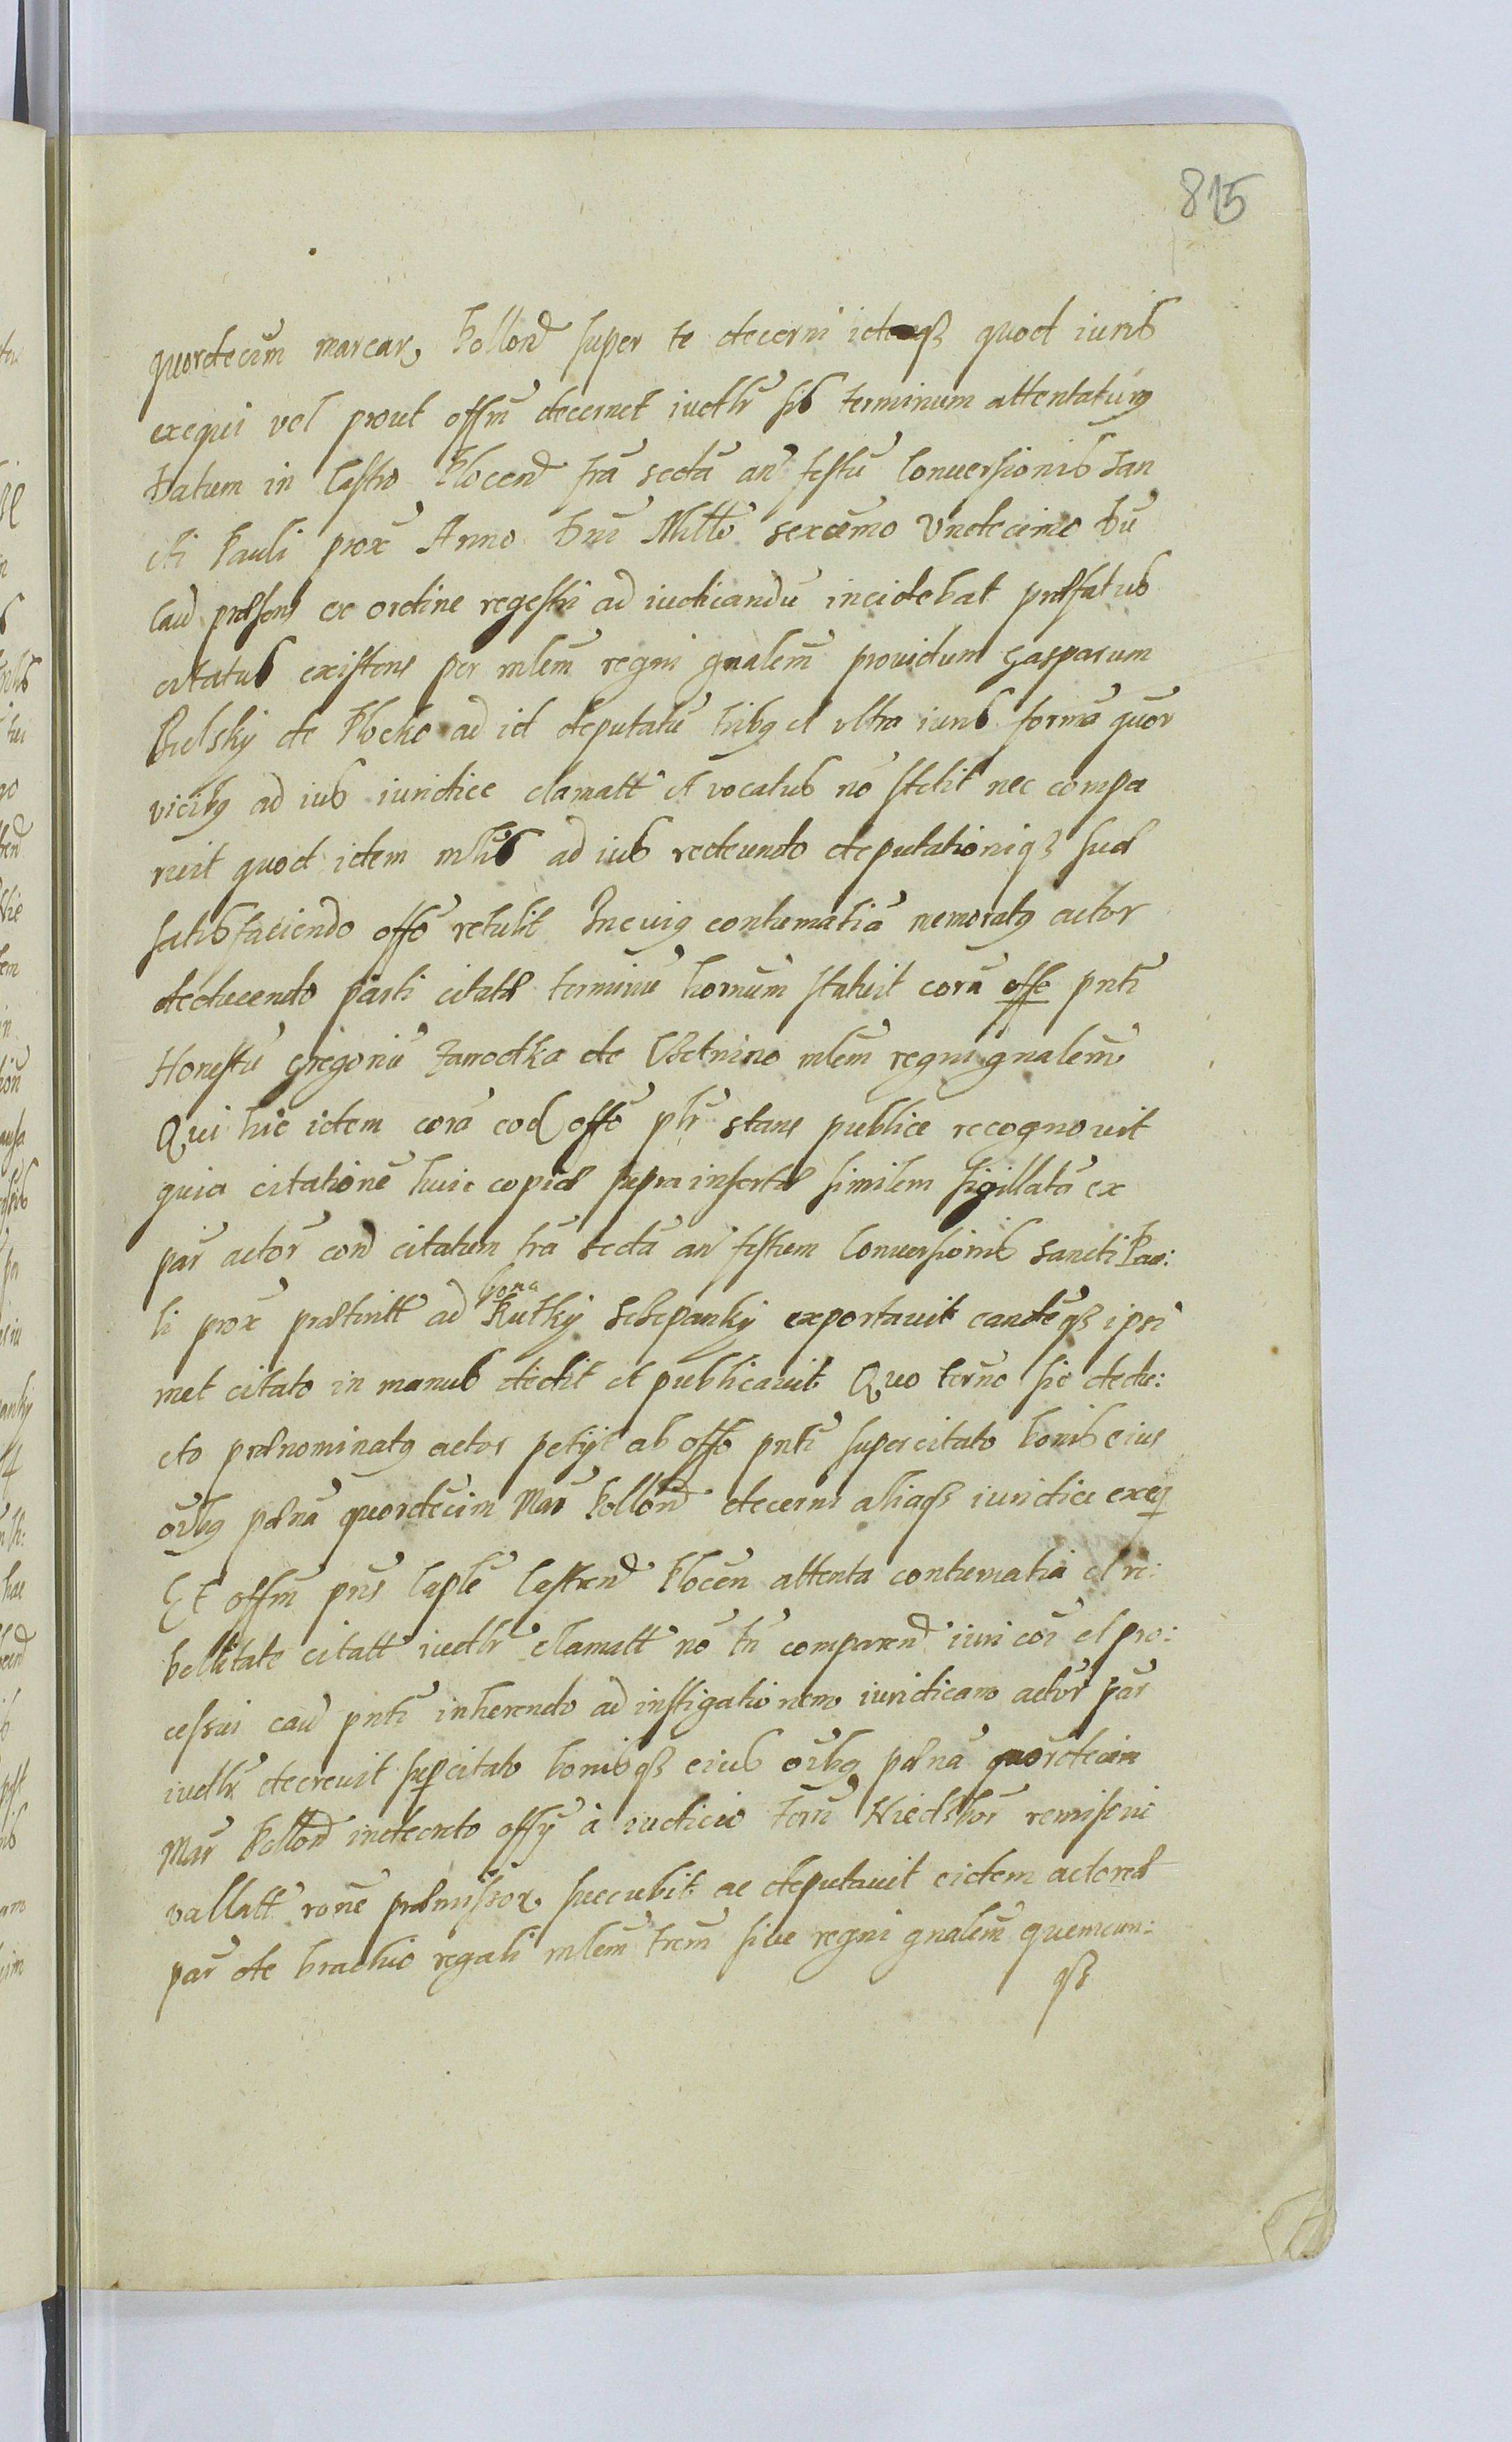 815
quordecim marcar Pollond super te decerni ideqz quod iuris
exequi vel prout offm decernet iudlr sis terminum attentaturus
Datum in Castro Plocens fra secda an festu Conversionis San
cti Pauli prox Anno Dni Millo sexcemo Undecimo Du
cau præsens ex ordine regestri ad iudicandu incidebat præfatus
citatus existens per mlem regni gnalem providum Gasparum
Bielsky de Plocko ad id deputatu tribus et ultra iuris forma quor
vicibus ad ius iuridice clamatt et vocatus no stetit nec compa
ruit quod idem mlis ad ius redeundo deputationiqz suæ
satisfaciendo offo retulit In cuius contumatia memoratus actor
deducendo parti citatæ terminu hornum statuit cora offo pnti
Honestu Gregoriu Zanodka de mlem regni gnalem
Qui hic idem cora eod offo plr stans publice recognovit
quia citatione huic copiæ supra insertæ similem sigillata ex
par actor cond citatum fra secda an festum Conversionis Sancti Pau:
li prox præteritt ad bona Rutky Schepanky exportavit eandeqz ipsi
met citato in manus dedit et publicavit Quo termo sic dedu:
cto prænominatus actor petiit ab offo pnti super citato bonis eius
oibus pæna quordecim Mar Pollond decerni aliaqz iuridice exeq
Et offm pns Caple Castrens Plocen attenta contumatia et re:
bellitate citatt iudlr clamatt no tn comparend iuri coi et pro:
cessui cau pnti inherendo ad instigationem iuridicam actor par
iudlr decrevit super citato bonisqz eius oibus pæna quordecim
Mar Pollond indecreto offy à iudicio Terri remissive
vallatt rone præmissor succubit ac deputavit eidem actoreæ
par de brachio regali mlem trem sive regni gnalem quemcun:
qz